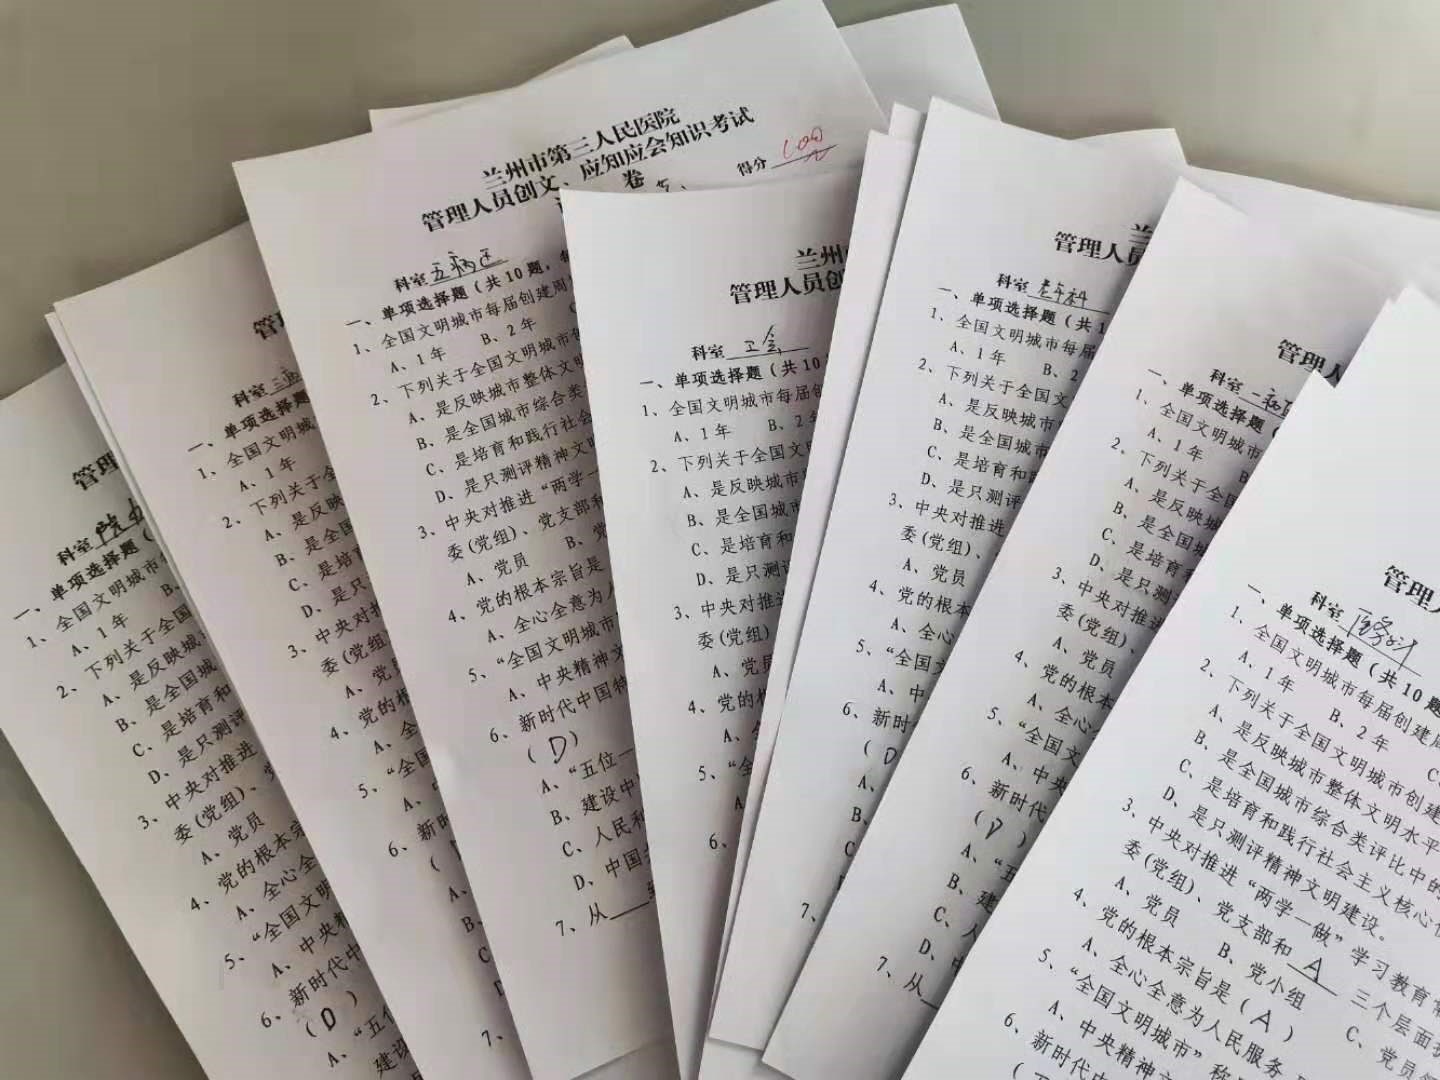 管理
科室
一、单项选择题（
1、全国文明城
A、1年 B、
2、下列关于全国
A、是反映城
B、是全国城
C、是培育和
D、是只测评
3、中央对推进
委(党组)、
A、党员
4、党的根本宗
A、全心全
5、“全国文明
A、中央精
6、新时代中
(D)
A、“五位
建设
管
科室
一、单项选择题
1、全国文明城
A、1年
2、下列关于全
A、是反映
B、是全国
C、是培
D、是只
3、中央对推
委(党组
A、党
4、党的根
A、全
5、“全国
A、
6、新时
(
A、
B、
C、
D
7、
兰州市第三人民医院
管理人员创文、应知应会知识考试
卷
得分 100
科室 五病区
一、单项选择题（共10题，每
1、全国文明城市每届创建周
A、1年 B、2年
2、下列关于全国文明城市
A、是反映城市整体文明
B、是全国城市综合类
C、是培育和践行社会
D、是只测评精神文明
3、中央对推进“两学一
委(党组)、党支部和
A、党员 B、党
4、党的根本宗旨是
A、全心全意为人
5、“全国文明城市
A、中央精神文
6、新时代中国特
(D)
A、“五位一
B、建设中
C、人民利
D、中国
7、从
兰州
管理人员创
科室 工会
一、单项选择题（共10
1、全国文明城市每届创
A、1年 B、2年
2、下列关于全国文
A、是反映城市
B、是全国城市
C、是培育和
D、是只测评
3、中央对推进
委(党组)
A、党员
4、党的根
A、
5、“全
A
6、
兰
管理人员
科室 老年科
一、单项选择题（共1
1、全国文明城市每届
A、1年 B、2
2、下列关于全国文
A、是反映城市
B、是全国城市
C、是培育和践
D、是只测评
3、中央对推进
委(党组)、
A、党员
4、党的根本
A、全心
5、“全国文
A、中
6、新时
(D
A、
B、
C
7、
管理人
科室 一病区
一、单项选择题（
1、全国文明城市
A、1年 B
2、下列关于全国
A、是反映城
B、是全国城
C、是培育
D、是只测
3、中央对推进
委(党组)、
A、党员
4、党的根本
A、全心
5、“全国文
A、中央
6、新时代
(D)
A、“五
B、建
C、人
D、中
7、从
管理人
科室
一、单项选择题（共10题
1、全国文明城市每届创建周
A、1年 B、2年 C
2、下列关于全国文明城市创建
A、是反映城市整体文明水平
B、是全国城市综合类评比中的
C、是培育和践行社会主义核心价
D、是只测评精神文明建设。
3、中央对推进“两学一做”学习教育常
委(党组)、党支部和 A 三个层面
A、党员 B、党小组 C、党员领
4、党的根本宗旨是(A)
A、全心全意为人民服务
5、“全国文明城市”称
A、中央精神文
6、新时代中